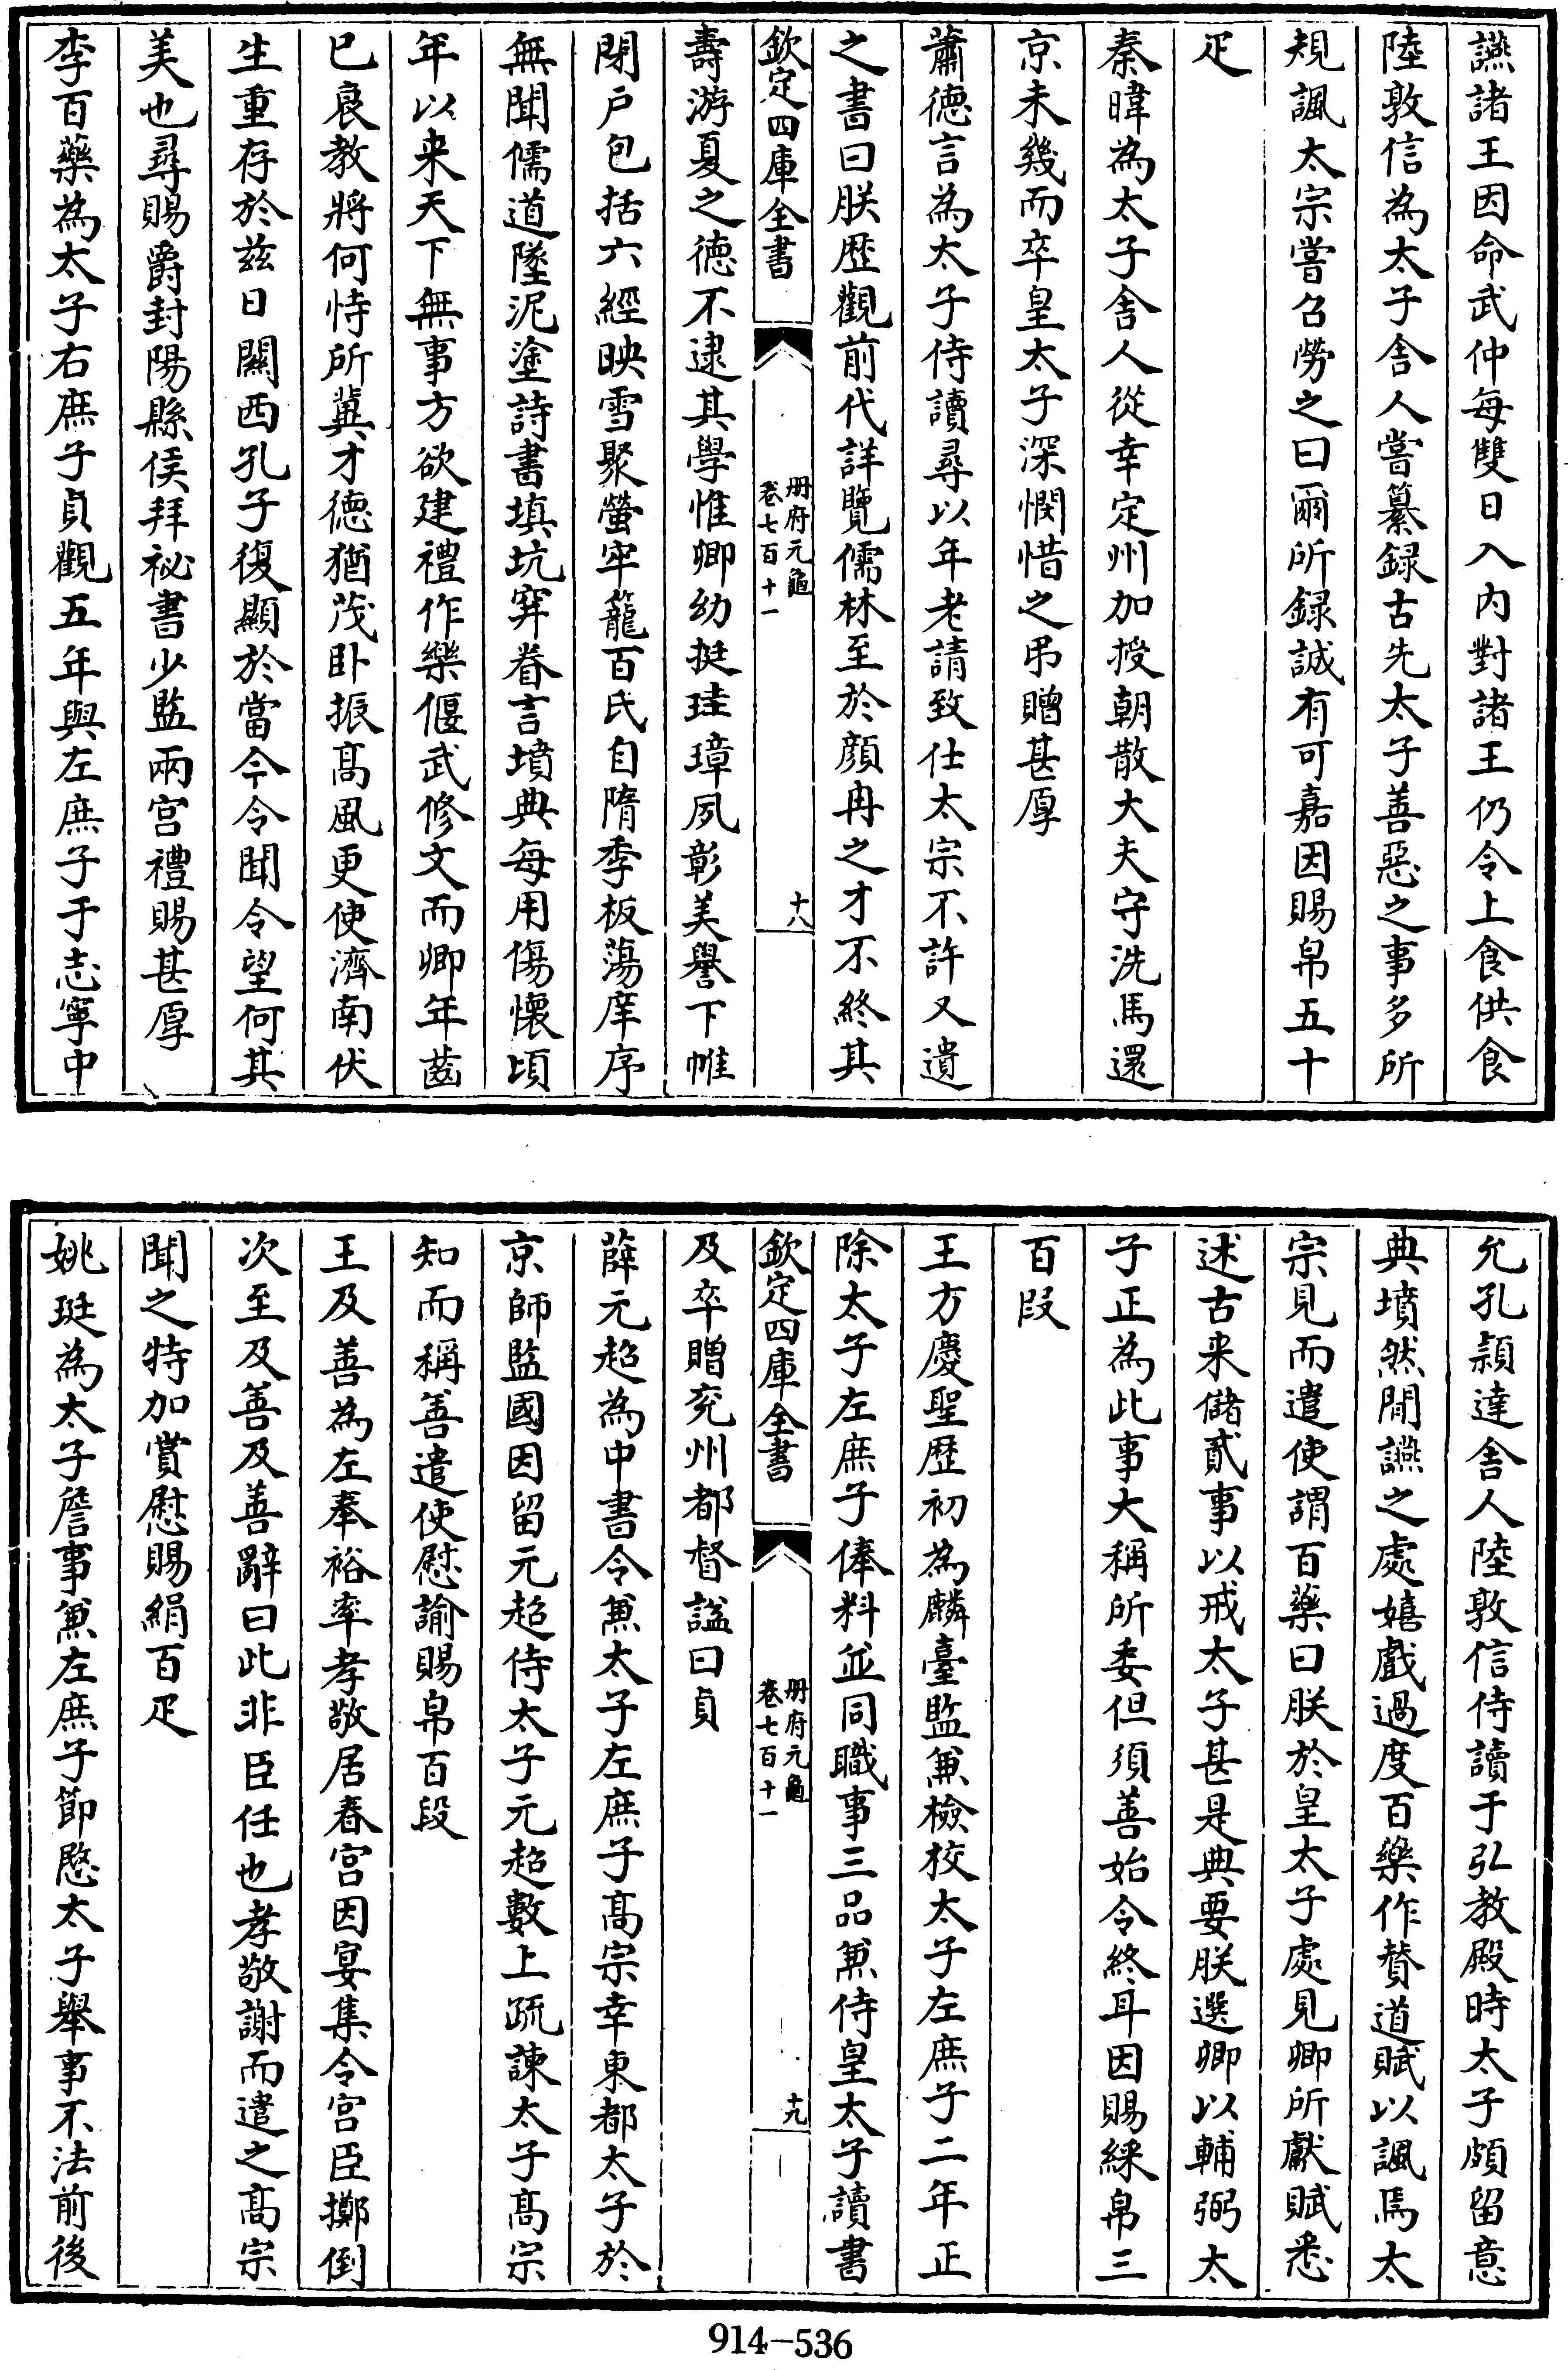 讌諸王因命武仲每雙日入内對諸王仍令上食供食
陸敦信為太子舍人嘗纂録古先太子善惡之事多所
規諷太宗嘗召勞之曰爾所録誠有可嘉因賜帛五十
疋
秦暐為太子舍人從幸定州加授朝散大夫守洗馬還
京未幾而卒皇太子深憫惜之弔贈甚厚
蕭徳言為太子侍讀尋以年老請致仕太宗不許又遺
之書曰朕歴觀前代詳覽儒林至於顔冉之才不終其
欽定四庫全書
册府元龜
卷七百十一
十八
壽游夏之徳不逮其學惟卿幼挺珪璋夙彰美譽下帷
閉户包括六經映雪聚螢牢籠百氏自隋季板蕩庠序
無聞儒道墜泥塗詩書填坑穽眷言墳典每用傷懷頃
年以来天下無事方欲建禮作樂偃武修文而卿年齒
已衰教將何恃所兾才徳猶茂卧振髙風更使濟南伏
生重存於兹日關西孔子復顯於當今令聞令望何其
美也尋賜爵封陽縣侯拜祕書少監兩宫禮賜甚厚
李百藥為太子右庶子貞觀五年與左庶子于志寧中
允孔頴達舍人陸敦信侍讀于弘教殿時太子頗留意
典墳然閒讌之處嬉戲過度百藥作贊道賦以諷焉太
宗見而遣使謂百藥曰朕於皇太子處見卿所獻賦悉
述古来儲貳事以戒太子甚是典要朕選卿以輔弼太
子正為此事大稱所委但須善始令終耳因賜綵帛三
百段
王方慶聖歴初為麟臺監兼檢校太子左庶子二年正
除太子左庶子俸料並同職事三品兼侍皇太子讀書
欽定四庫全書
册府元龜
卷七百十一
十九
及卒贈兖州都督諡曰貞
薛元超為中書令兼太子左庶子髙宗幸東都太子於
京師監國因留元超侍太子元超數上疏諫太子髙宗
知而稱善遣使慰諭賜帛百段
王及善為左奉裕率孝敬居春宫因宴集令宫臣擲倒
次至及善及善辭曰此非臣任也孝敬謝而遣之髙宗
聞之特加賞慰賜絹百疋
姚珽為太子詹事兼左庶子節愍太子舉事不法前後
914-536